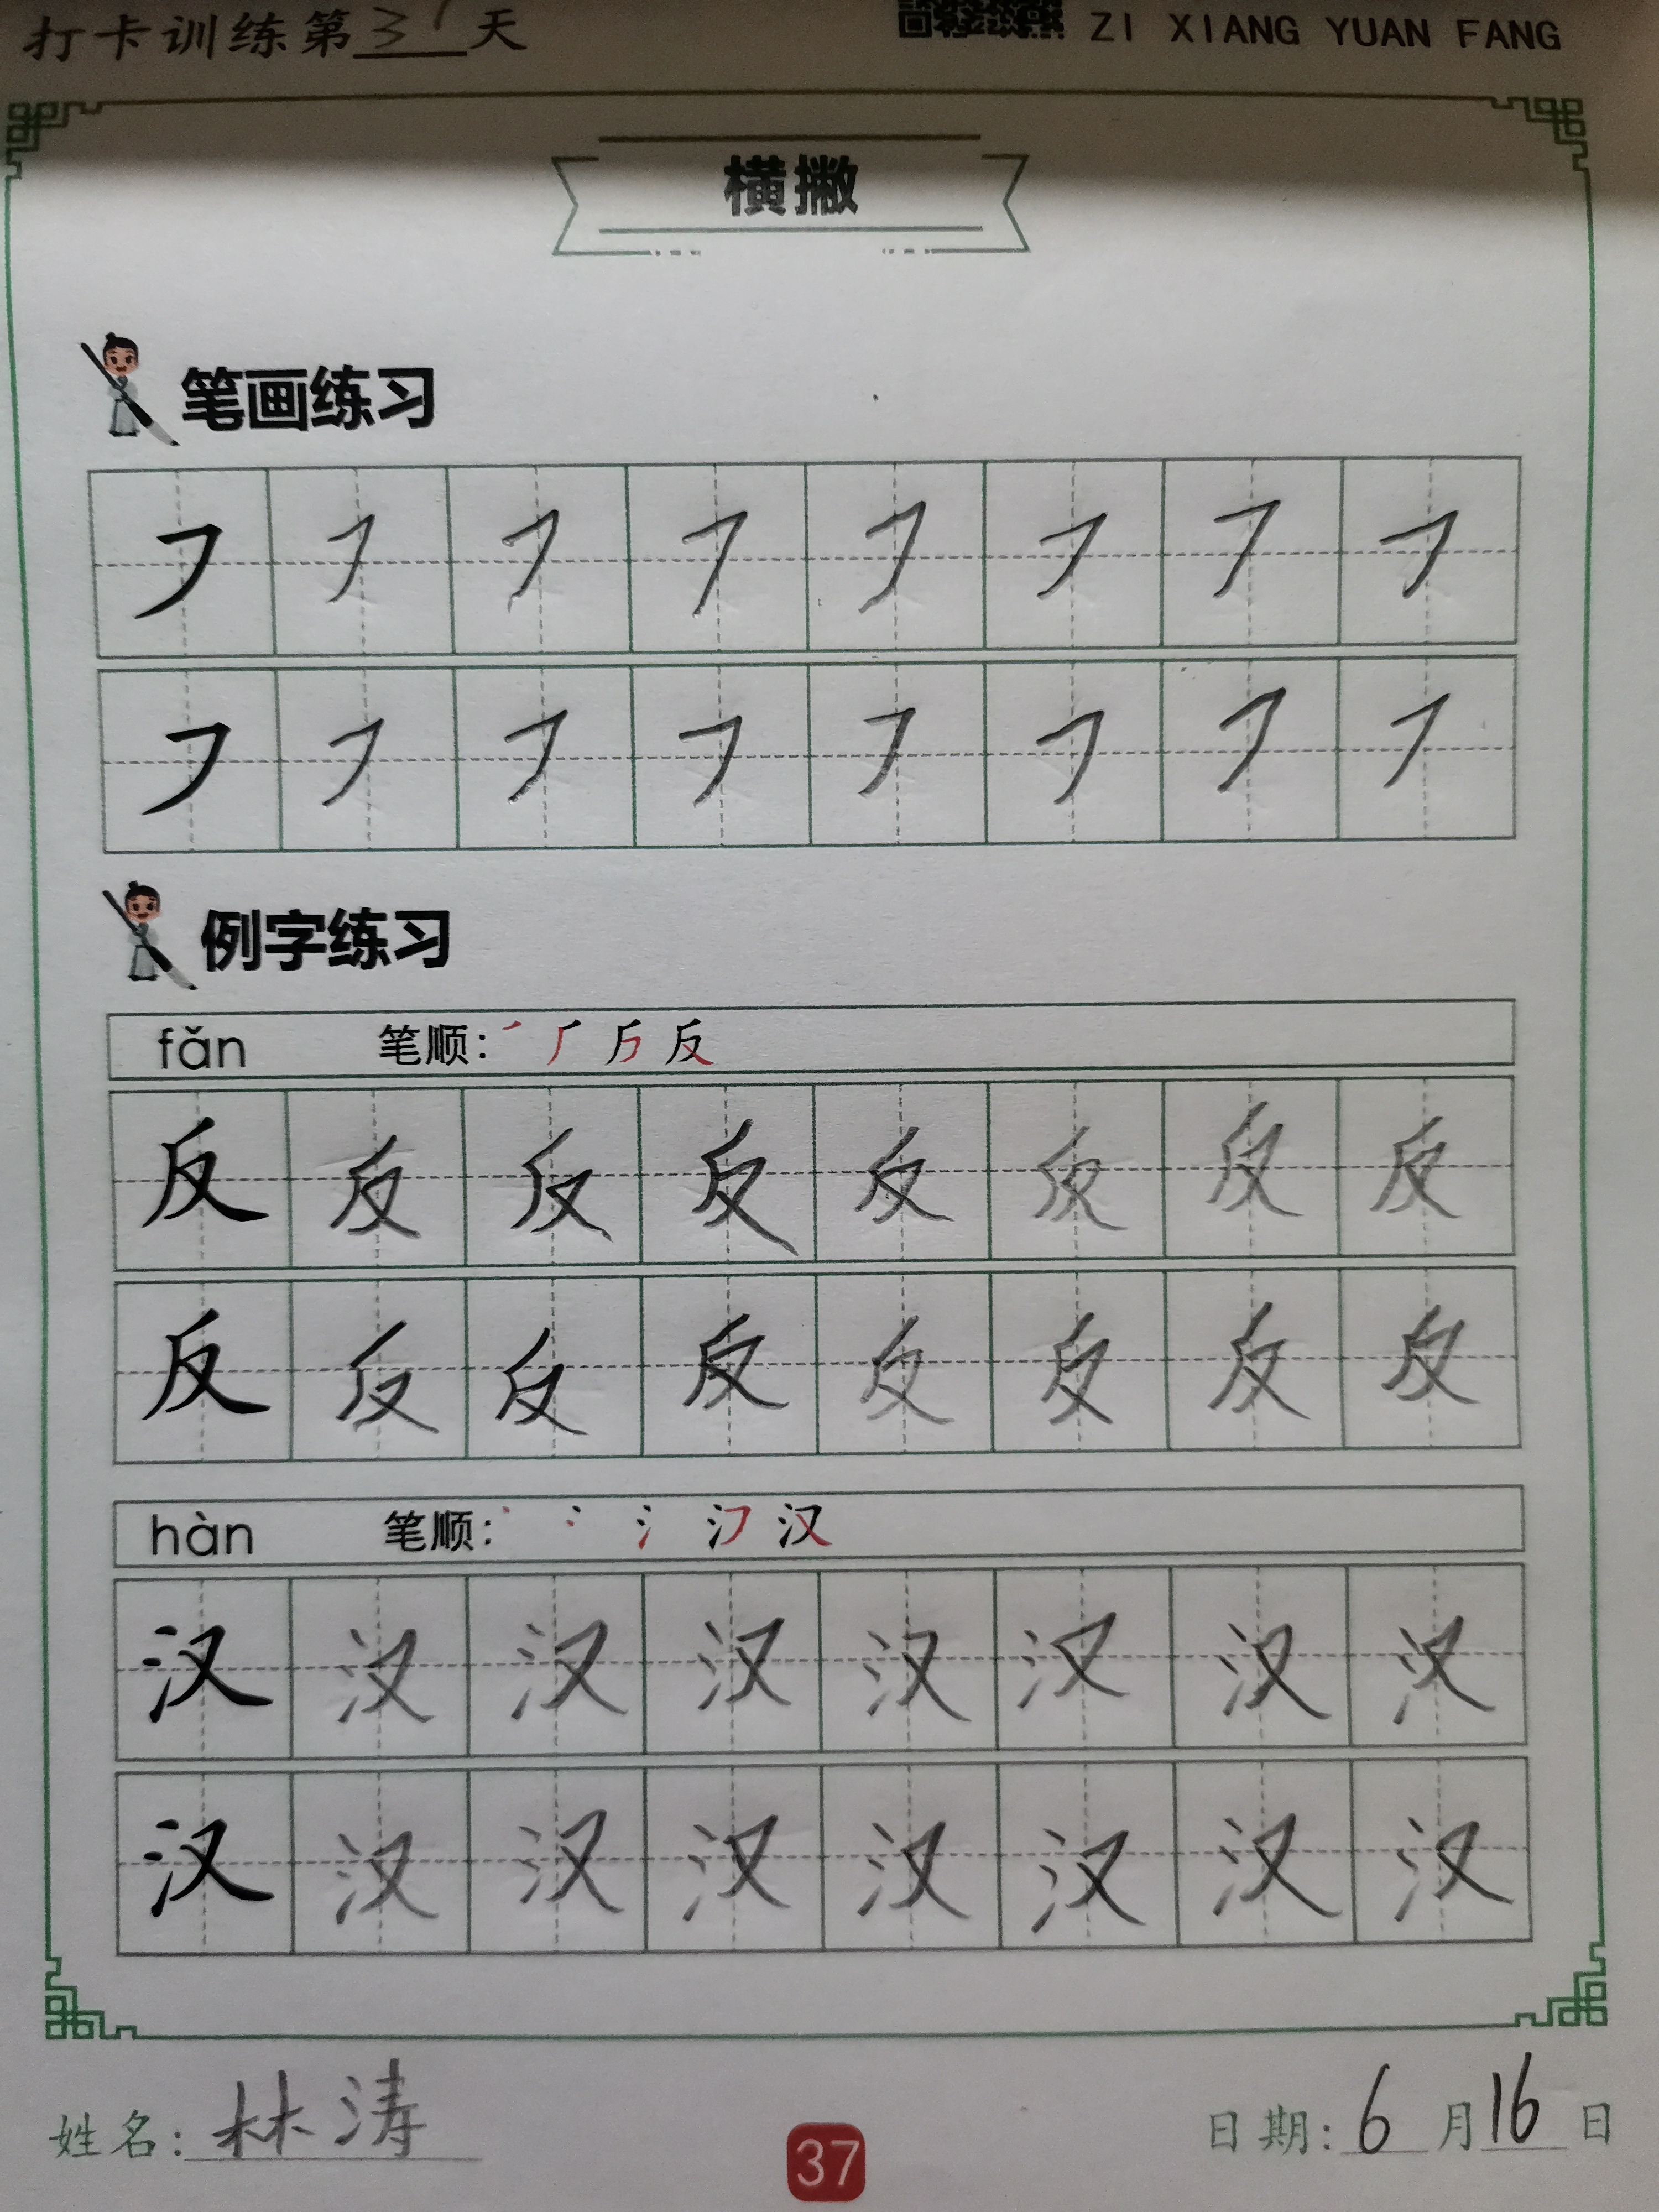 打卡训练第31天 ZI XIANG YUAN FANG
横撇
笔画练习
㇇ ㇇ ㇇ ㇇ ㇇ ㇇ ㇇ ㇇
㇇ ㇇ ㇇ ㇇ ㇇ ㇇ ㇇ ㇇
例字练习
fǎn 笔顺: 反
反 反 反 反 反 反 反 反
反 反 反 反 反 反 反 反
hàn 笔顺: 汉
汉 汉 汉 汉 汉 汉 汉 汉
汉 汉 汉 汉 汉 汉 汉 汉
姓名: 林涛 日期: 6月16日
37